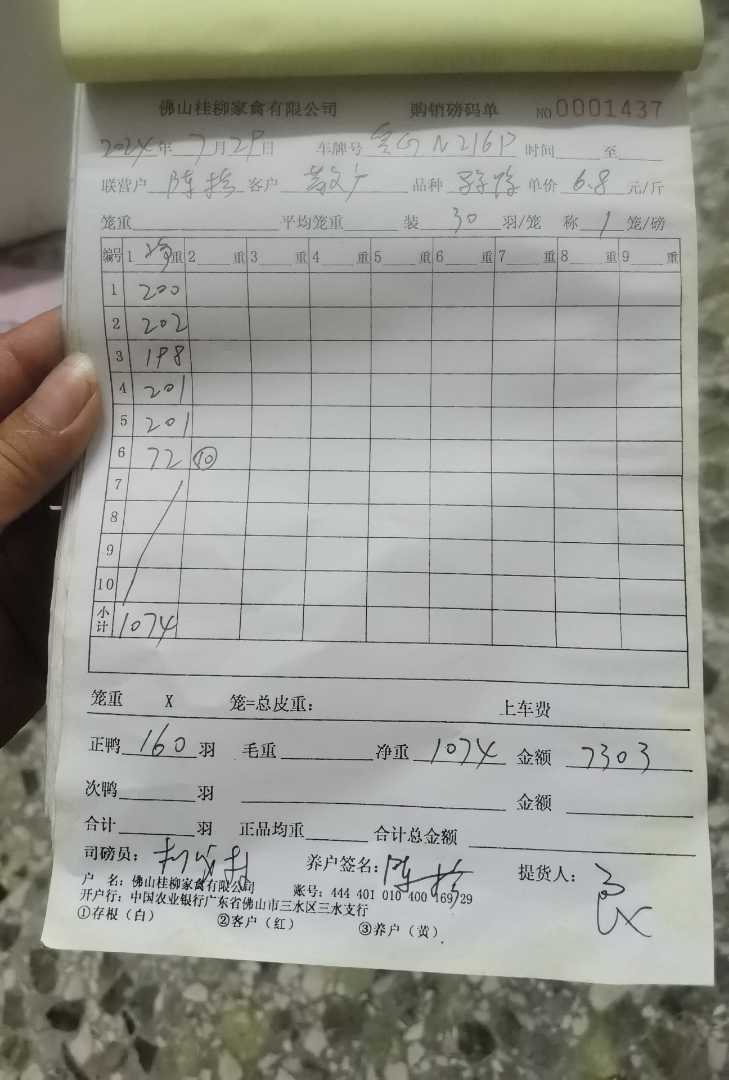 佛山桂柳家禽有限公司 购销磅码单 NO 0001437
2024年 7月29日 车牌号 GN216P 时间 至
联营户 陈 客户 品种 单价 6.8 元/斤
笼重 平均笼重 装 30 羽/笼 称 1 笼/磅
编号 1 净重 2 重 3 重 4 重 5 重 6 重 7 重 8 重 9 重
1 200
2 202
3 198
4 201
5 201
6 72 ⑩
7
8
9
10
小计 1074
笼重 X 笼=总皮重: 上车费
正鸭 160 羽 毛重 净重 1074 金额 7303
次鸭 羽 金额
合计 羽 正品均重 合计总金额
司磅员: 养户签名: 陈 提货人:
户 名: 佛山桂柳家禽有限公司 账号: 444 401 010 400 169 29
开户行: 中国农业银行广东省佛山市三水区三水支行
①存根(白) ②客户(红) ③养户(黄)